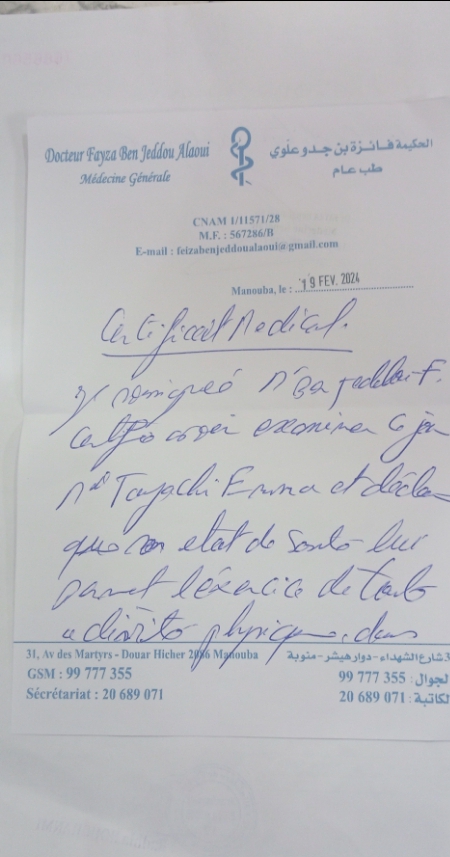 Docteur Fayza Ben Jeddou Alaoui
Médecine Générale
الحكيمة فائزة بن جدو علوي
طب عام
CNAM 1/11571/28
M.F. : 567286/B
E-mail : feizabenjeddoualaoui@gmail.com
Manouba, le : 19 FEV. 2024
Certificat Medical.
Je soussigné Dr Ben Jeddou F.
certifie avoir examiner ce jour
Tayachi Emna et déclare
que son etat de Santé lui
permet l'éxercice de toute
activité physique, dans
31, Av des Martyrs - Douar Hicher 2086 Manouba
GSM : 99 777 355
Sécrétariat : 20 689 071
3 شارع الشهداء - دوار هيشر - منوبة
لجوال : 355 777 99
لكاتبة : 071 689 20